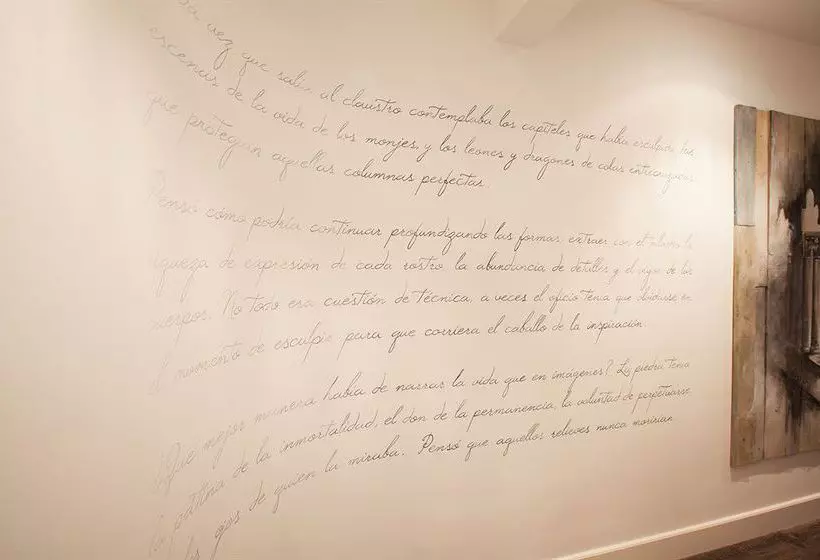 vez que salía al claustro contemplaba los capiteles que había esculpido, las
escenas de la vida de los monjes, y los leones y dragones de colas entrecruzadas
que protegían aquellas columnas perfectas.
Pensó cómo podría continuar profundizando las formas, extraer con el
riqueza de expresión de cada rostro, la abundancia de detalles y el vigor de los
cuerpos. No todo era cuestión de técnica, a veces el oficio tenía que olvidarse en
el momento de esculpir para que corriera el caballo de la inspiración.
¿Qué mejor manera había de narrar la vida que en imágenes? La piedra tenía
la pátina de la inmortalidad, el don de la permanencia, la voluntad de perpetuarse,
los ojos de quien la miraba. Pensó que aquellos relieves nunca morirían